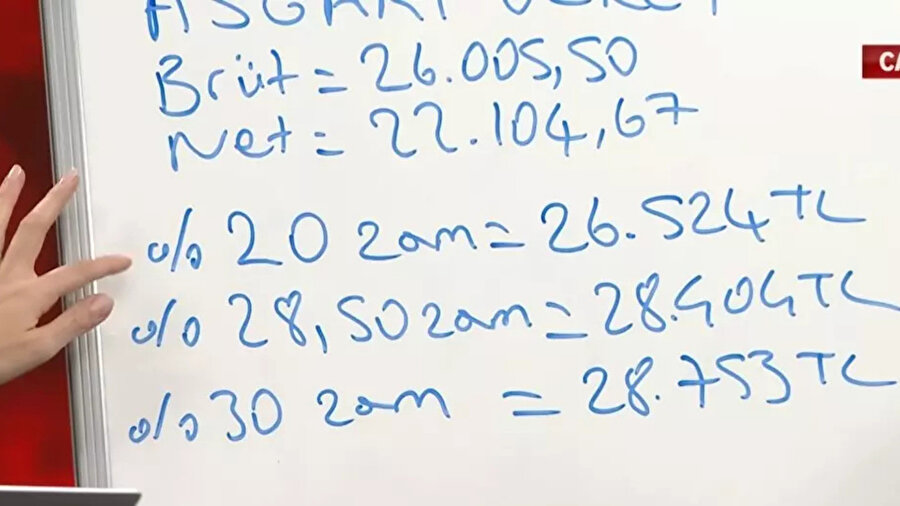 ASGARİ ÜCRET
Brüt = 26.005,50
Net = 22.104,67
% 20 zam = 26.524 TL
% 28,50 zam = 28.404 TL
% 30 zam = 28.753 TL